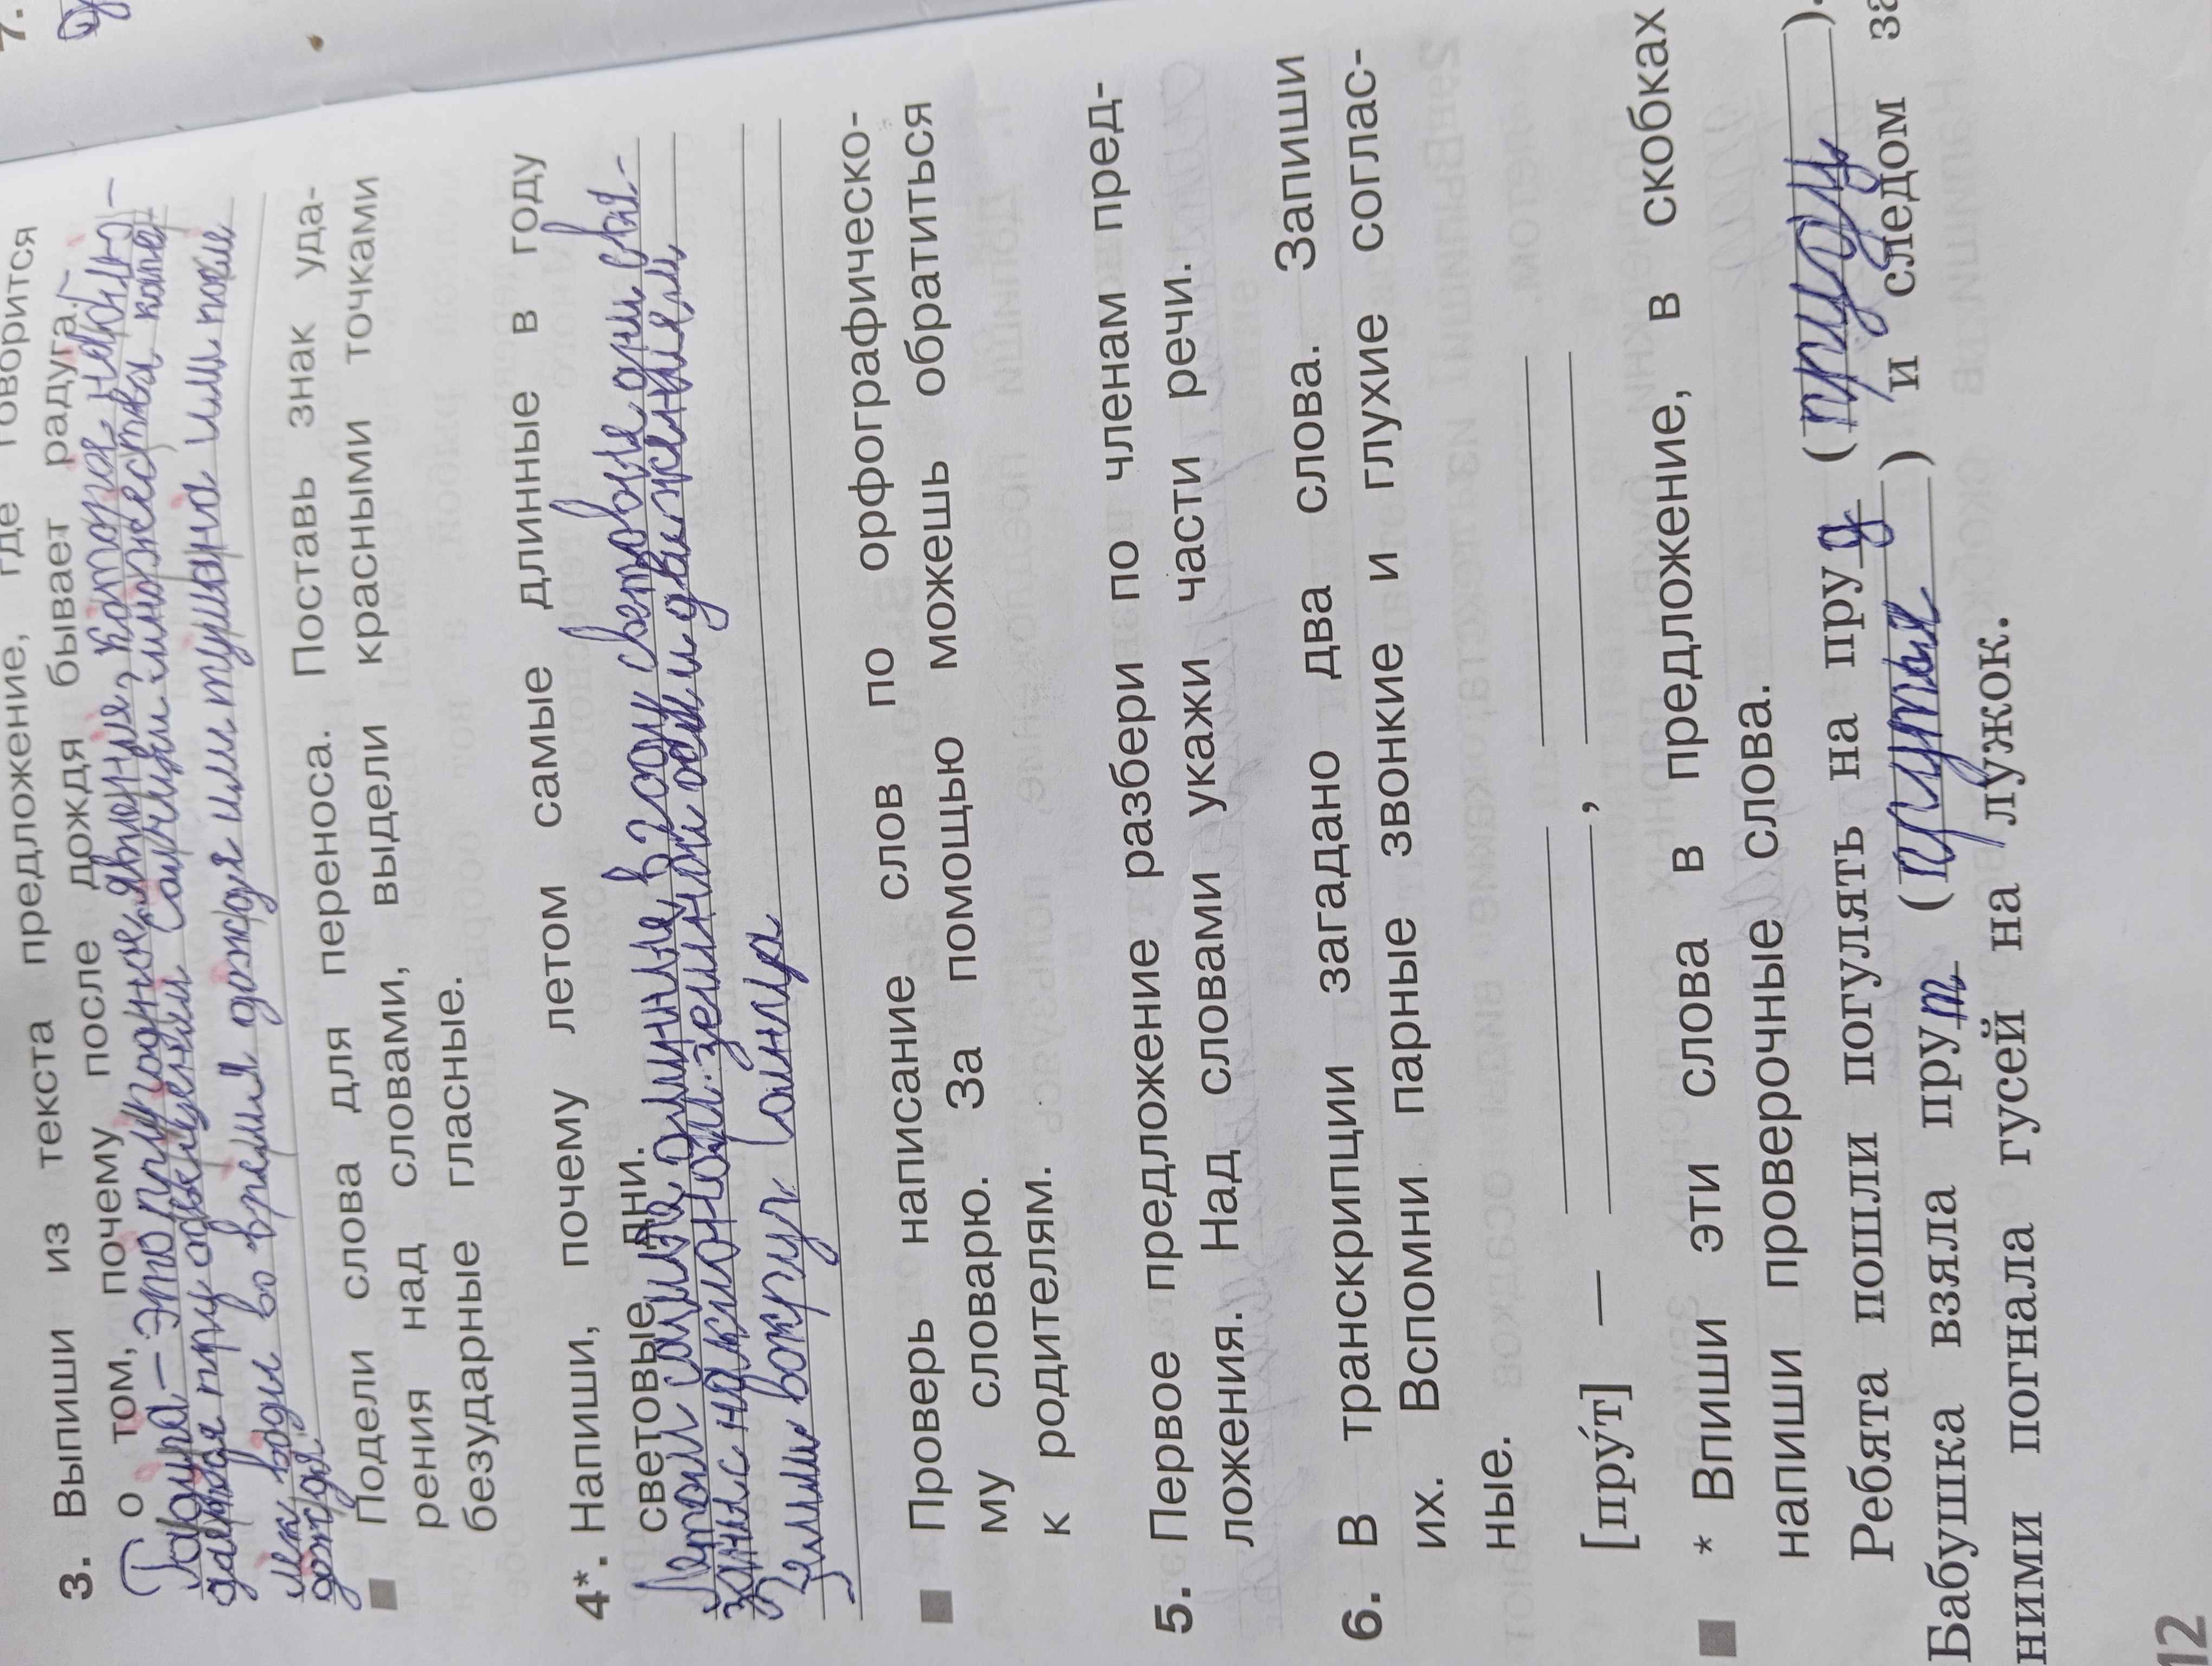 7.
3. Выпиши из текста предложение, где говорится
о том, почему после дождя бывает радуга.
Радуга – это природное явление, которое
во время дождя или тумана или после
дождя
Подели слова для переноса. Поставь знак уда-
рения над словами, выдели красными точками
безударные гласные.
4*. Напиши, почему летом самые длинные в году
световые дни.
Летом самые длинные в году световые дни свя-
заны с наклоном земной оси и движением
Земли вокруг Солнца
Проверь написание слов по орфографическо-
му словарю. За помощью можешь обратиться
к родителям.
5. Первое предложение разбери по членам пред-
ложения. Над словами укажи части речи.
6. В транскрипции загадано два слова. Запиши
их. Вспомни парные звонкие и глухие соглас-
ные.
[пру́т] — ,
* Впиши эти слова в предложение, в скобках
напиши проверочные слова.
Ребята пошли погулять на пруд (пруды).
Бабушка взяла прут (прутья) и следом за
ними погнала гусей на лужок.
12